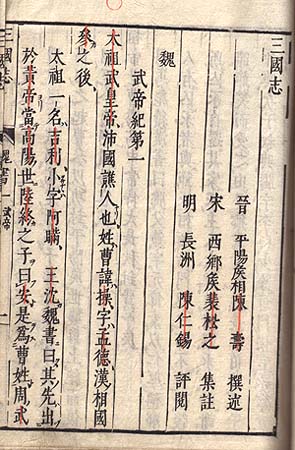 三國志
晉 平陽侯相陳 壽 撰述
宋 西鄉侯裴松之 集註
明 長洲 陳仁錫 評閱
魏
武帝紀第一
太祖武皇帝沛國譙人也姓曹諱操字孟德漢相國
參之後
太祖一名吉利小字阿瞞 王沈魏書曰其先出
於黃帝當高陽世陸終之子曰安是爲曹姓周武
三國志 魏書一 武帝 一